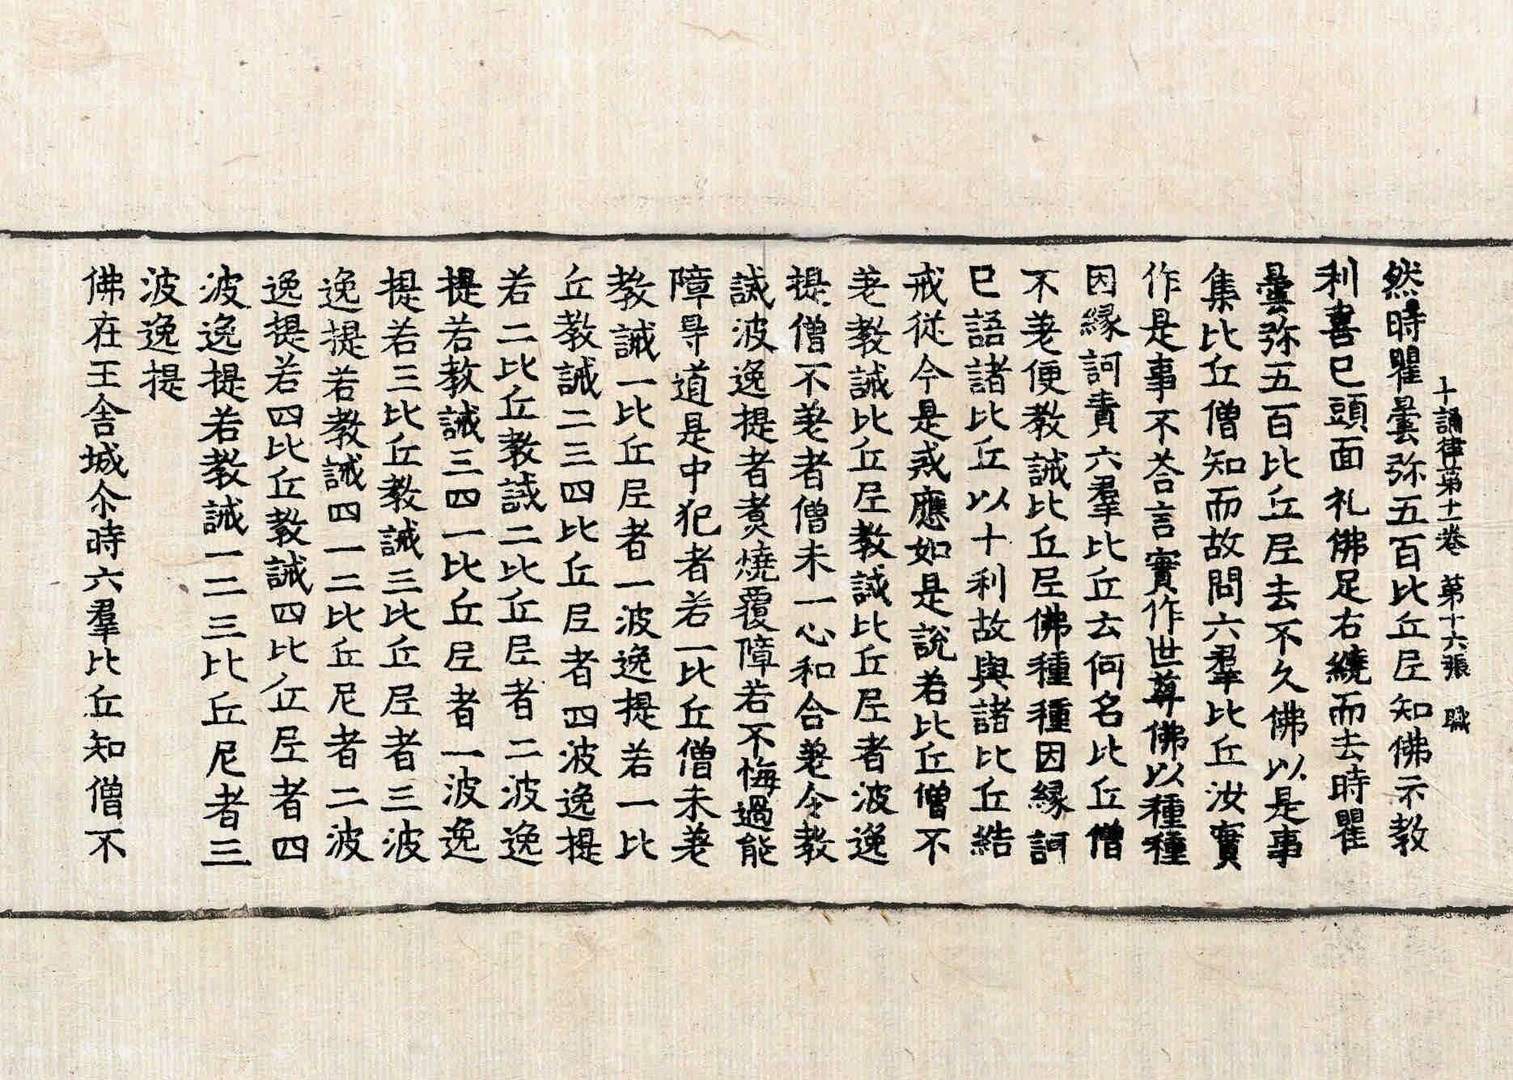 十誦律第十一卷 第十六張 職
然時瞿曇弥五百比丘尼知佛示教
利喜已頭面礼佛足右繞而去時瞿
曇弥五百比丘尼去不久佛以是事
集比丘僧知而故問六羣比丘汝實
作是事不荅言實作世尊佛以種種
因緣訶責六羣比丘云何名比丘僧
不差便教誡比丘尼佛種種因緣訶
已語諸比丘以十利故與諸比丘結
戒從今是戒應如是說若比丘僧不
差教誡比丘尼教誡比丘尼者波逸
提僧不差者僧未一心和合差令教
誡波逸提者煑燒覆障若不悔過能
障㝵道是中犯者若一比丘僧未差
教誡一比丘尼者一波逸提若一比
丘教誡二三四比丘尼者四波逸提
若二比丘教誡二比丘尼者二波逸
提若教誡三四一比丘尼者一波逸
提若三比丘教誡三比丘尼者三波
逸提若教誡四一二比丘尼者二波
逸提若四比丘教誡四比丘尼者四
波逸提若教誡一二三比丘尼者三
波逸提
佛在王舍城尒時六羣比丘知僧不